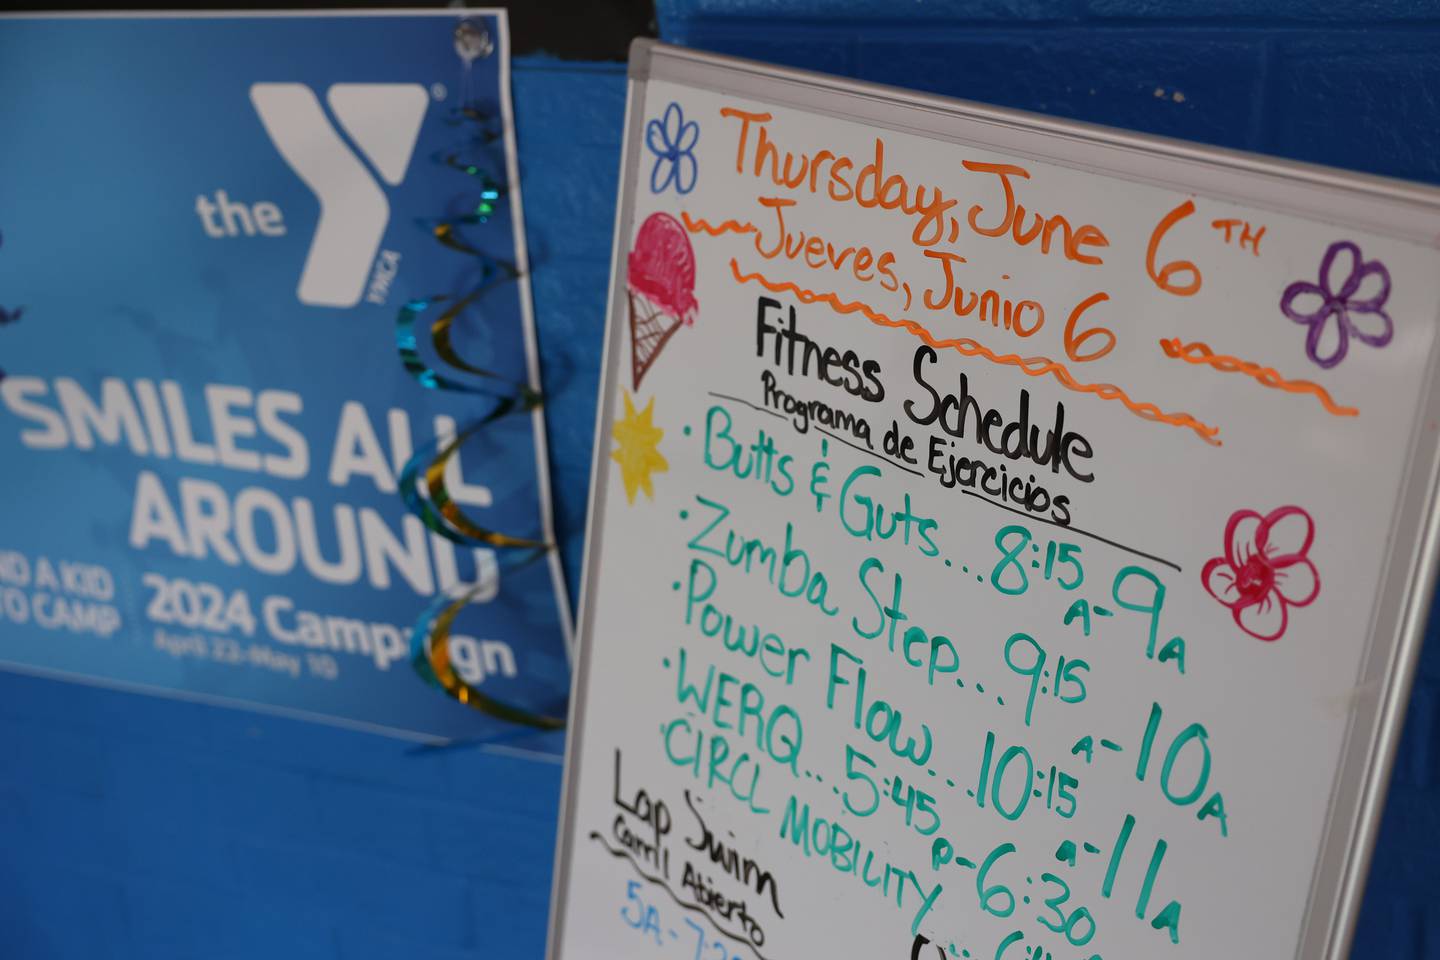 the
YMCA
SMILES ALL
AROUND
ND A KID
TO CAMP
2024 Campaign
April 22-May 10
Thursday, June 6TH
Jueves, Junio 6
Fitness Schedule
Programa de Ejercicios
· Butts & Guts... 8:15A-9A
· Zumba Step... 9:15A-10A
· Power Flow... 10:15A-11A
· WERQ... 5:45P-6:30
· CIRCL MOBILITY
Lap Swim
Carril Abierto
5A-